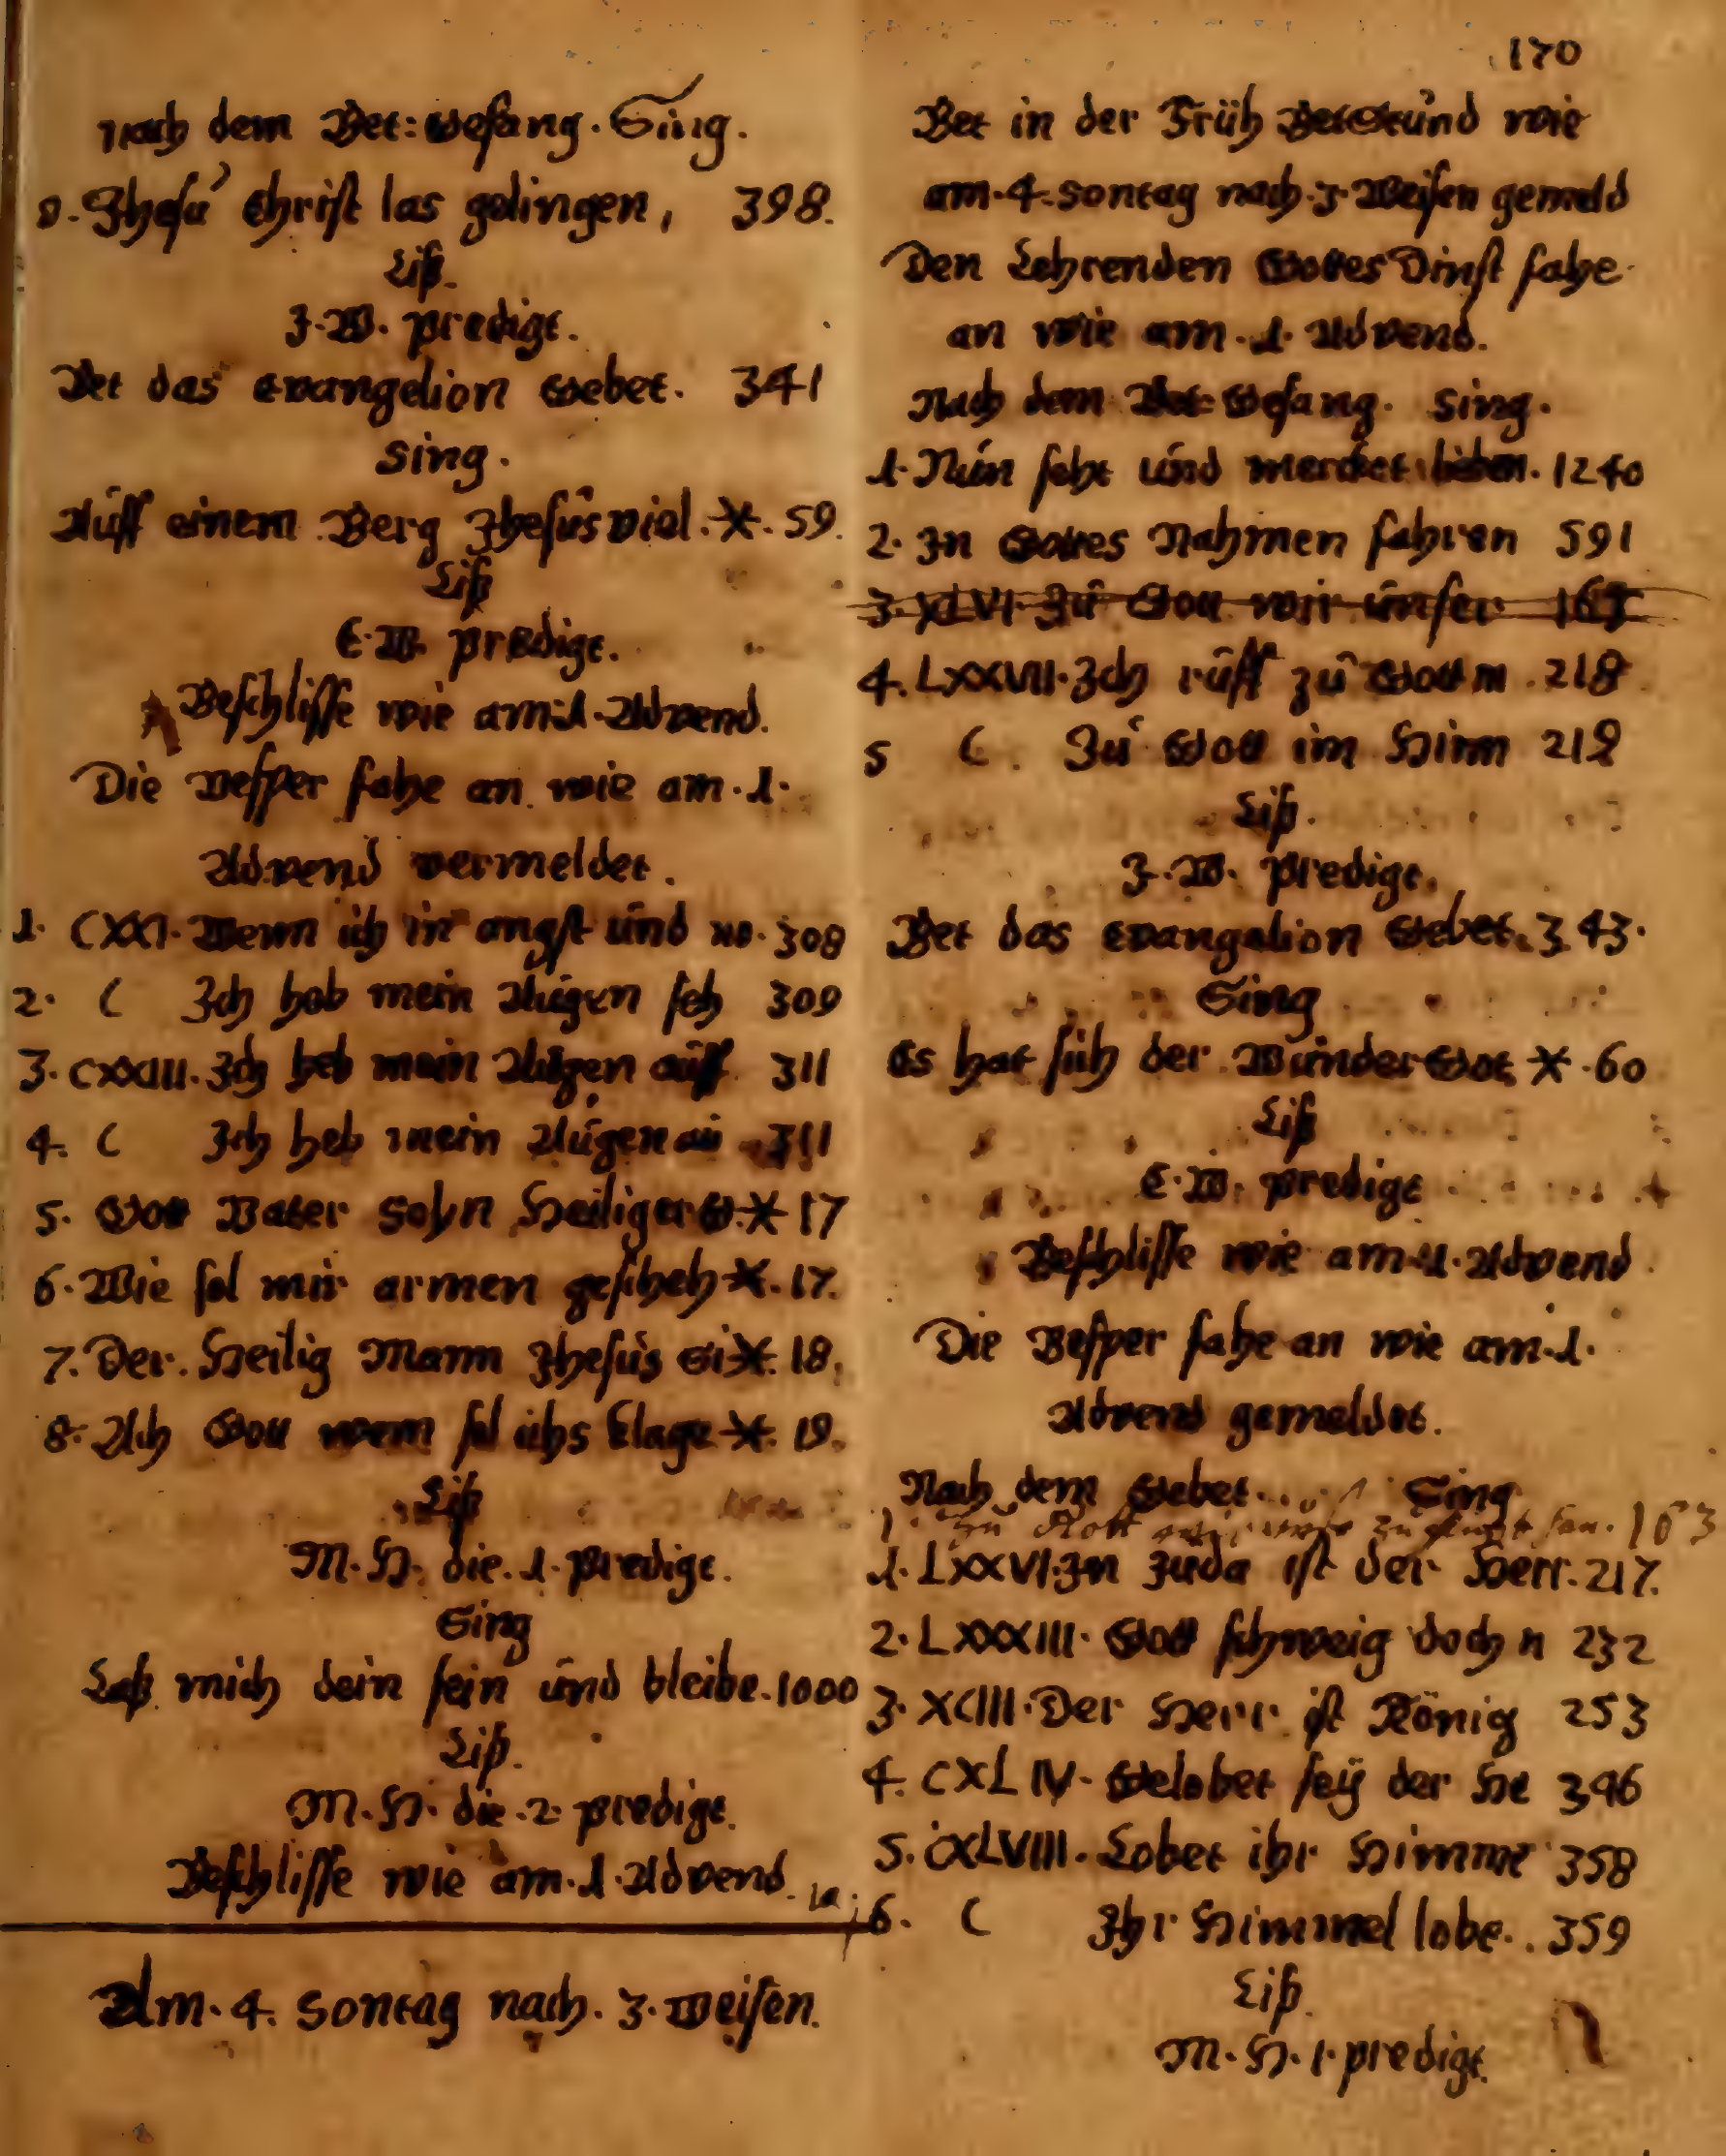 nach dem Bet: Gesang. Sing.
0. Jhesu Christ las gelingen, 398.
Liß.
J. W. predigt.
Bet das Evangelion Gebet. 341
Sing.
Auff einem Berg Jhesus viel. *. 59.
Liß
E. W. predigt.
Beschlisse wie am. 1. Advend.
Die Vesper fahe an wie am. 1.
Advend vermeldet.
1. CXXI. Wenn ich in angst und no. 308
2. C Ich hab mein Augen seh 309
3. CXXIII. Ich heb mein Augen auff 311
4. C Ich heb mein Augen au 311
5. Gott Vater Sohn Heiliger G. * 17
6. Wie sol mir armen gescheh *. 17.
7. Der. Heilig Mann Jhesus *. 18.
8. Ach Gott wem sol ichs klage *. 19.
Liß
M. H. die. 1. predigt.
Sing
Laß mich dein sein und bleibe. 1000
Liß.
M. H. die. 2. predigt.
Beschlisse wie am. 1. Advend.
Am. 4. Sontag nach. 3. Weisen.
170
Bet in der Früh BetStund wie
am. 4. Sontag nach. 3. Weisen gemeld
Den Lehrenden Gottes Dinst fahe
an wie am. 1. Advend.
Nach dem Bet: Gesang. Sing.
1. Nun seht und mercket lieben. 1240
2. In Gottes Nahmen fahren 591
3. XLVI. Zu Gott wir unser 163
4. LXXVII. Ich ruff zu Gott m. 218
5 C. Zu Gott im Himm 219
Liß.
J. W. predigt.
Bet das Evangelion Gebet. 343.
Sing
Es hat sich der WunderGot * . 60
Liß
E. W. predigt
Beschlisse wie am. 1. Advend
Die Vesper fahe an wie am. 1.
Advend gemeldet.
Nach dem Gebet. Sing
1. Zu Gott wir unser Zuflucht han. 163
1. LXXVI. In Juda ist der Herr. 217.
2. LXXXIII. Gott schweig doch n 232
3. XCIII. Der Herr ist König 253
4. CXLIV. Gelobet seÿ der He 346
5. CXLVIII. Lobet ihr Himme 358
6. C Ihr Himmel lobe. 359
Liß.
M. H. 1. predigt.